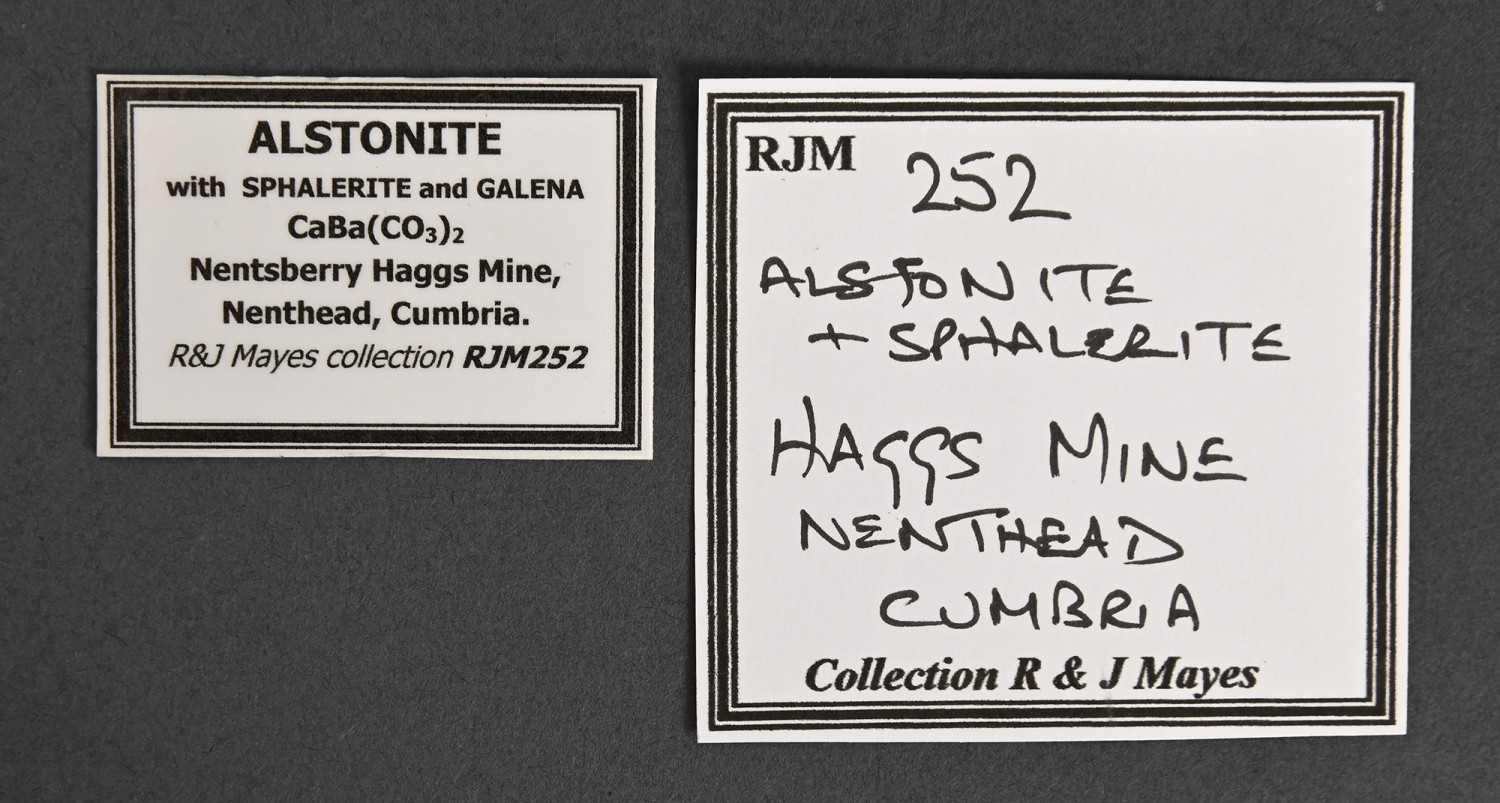 ALSTONITE
with SPHALERITE and GALENA
CaBa(CO₃)₂
Nentsberry Haggs Mine,
Nenthead, Cumbria.
R&J Mayes collection RJM252
RJM 252
ALSTONITE
+ SPHALERITE
HAGGS MINE
NENTHEAD
CUMBRIA
Collection R & J Mayes